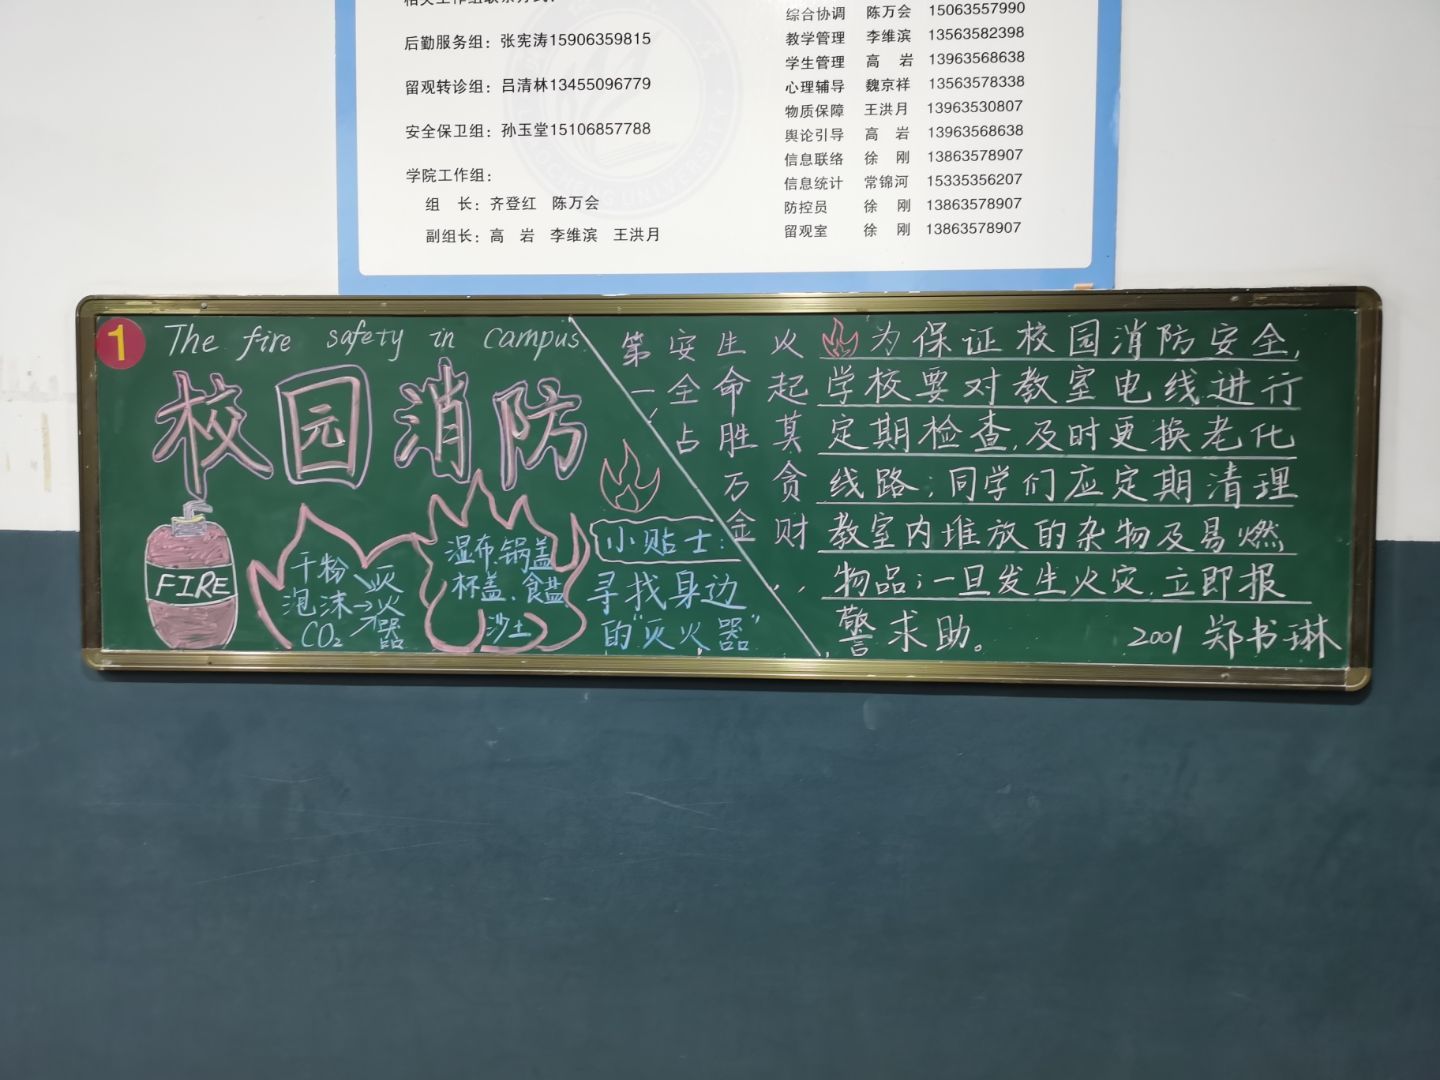 后勤服务组：张宪涛15906359815
留观转诊组：吕清林13455096779
安全保卫组：孙玉堂15106857788
学院工作组：
组 长：齐登红 陈万会
副组长：高 岩 李维滨 王洪月
综合协调 陈万会 15063557990
教学管理 李维滨 13563582398
学生管理 高 岩 13963568638
心理辅导 魏京祥 13563578338
物质保障 王洪月 13963530807
舆论引导 高 岩 13963568638
信息联络 徐 刚 13863578907
信息统计 常锦河 15335356207
防控员 徐 刚 13863578907
留观室 徐 刚 13863578907
1
The fire safety in campus
校园消防
FIRE
干粉
泡沫
CO2
灭火器
湿布、锅盖
杯盖、食盐
沙土
小贴士：
寻找身边
的"灭火器"
火起莫贪财，
生命胜万金，
安全占
第一，
为保证校园消防安全，
学校要对教室电线进行
定期检查，及时更换老化
线路；同学们应定期清理
教室内堆放的杂物及易燃
物品；一旦发生火灾，立即报
警求助。
2001 郑书琳